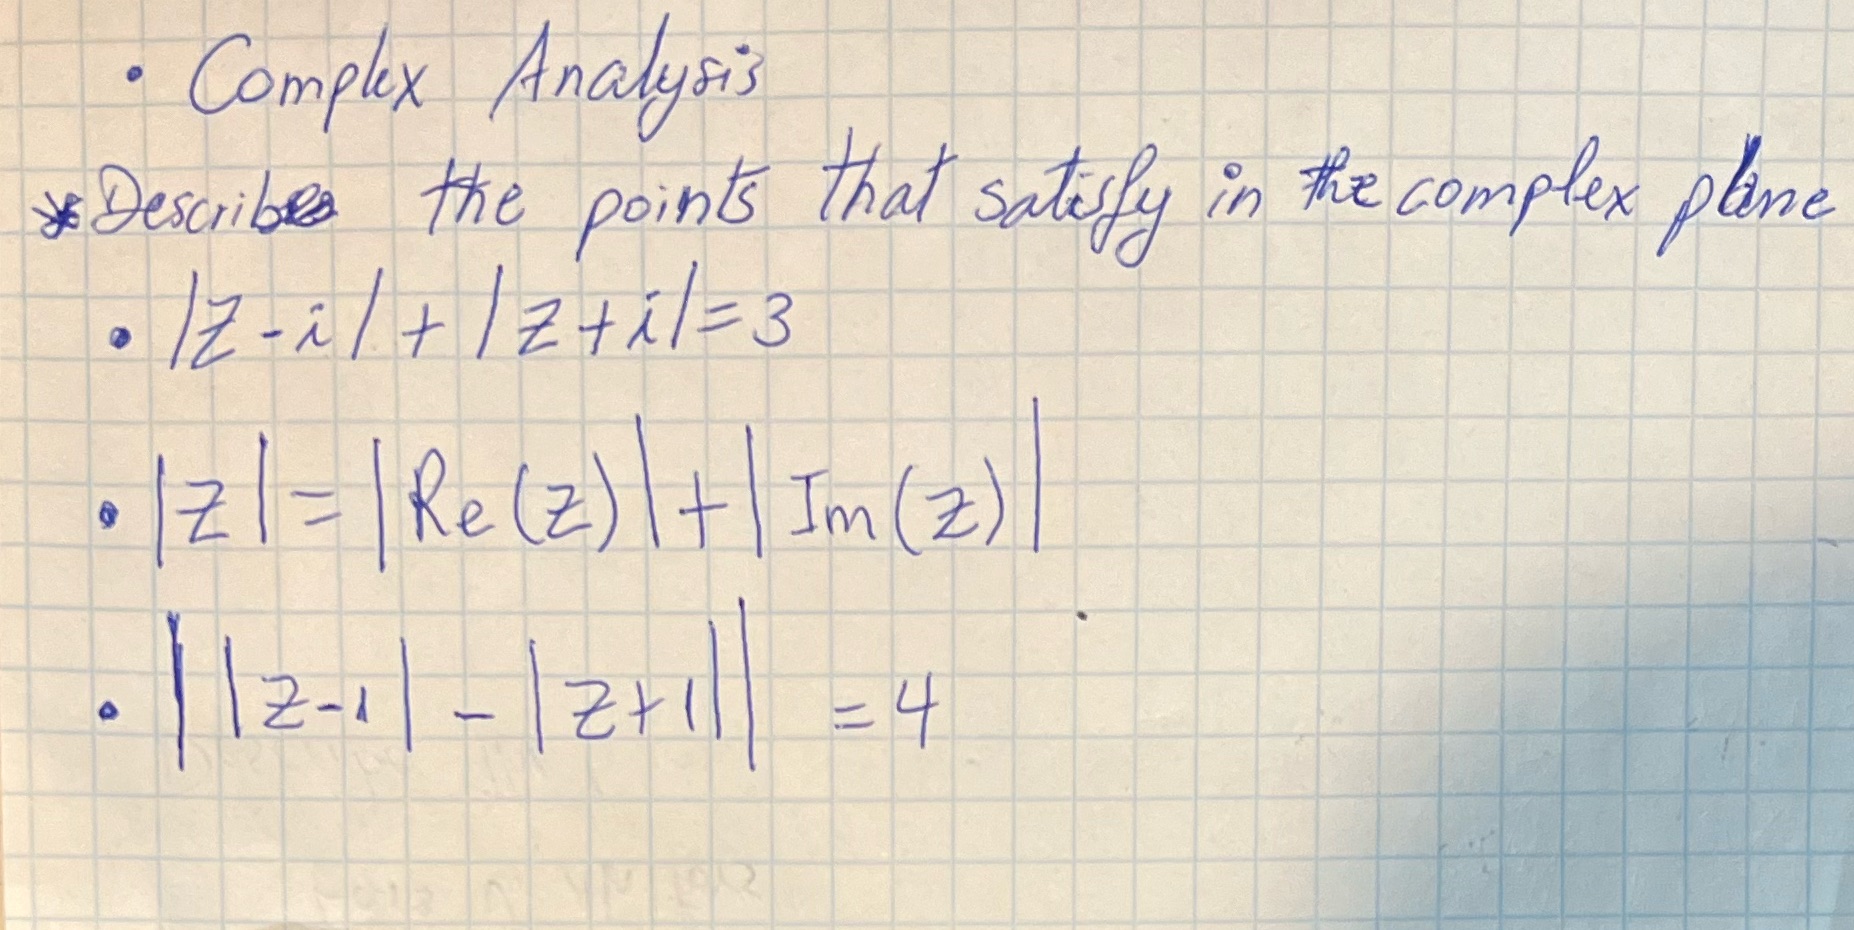 • Complex Analysis
* Describe the points that satisfy in the complex plane
• |z-i| + |z+i| = 3
• |z| = |Re(z)| + |Im(z)|
• ||z-1| - |z+1|| = 4